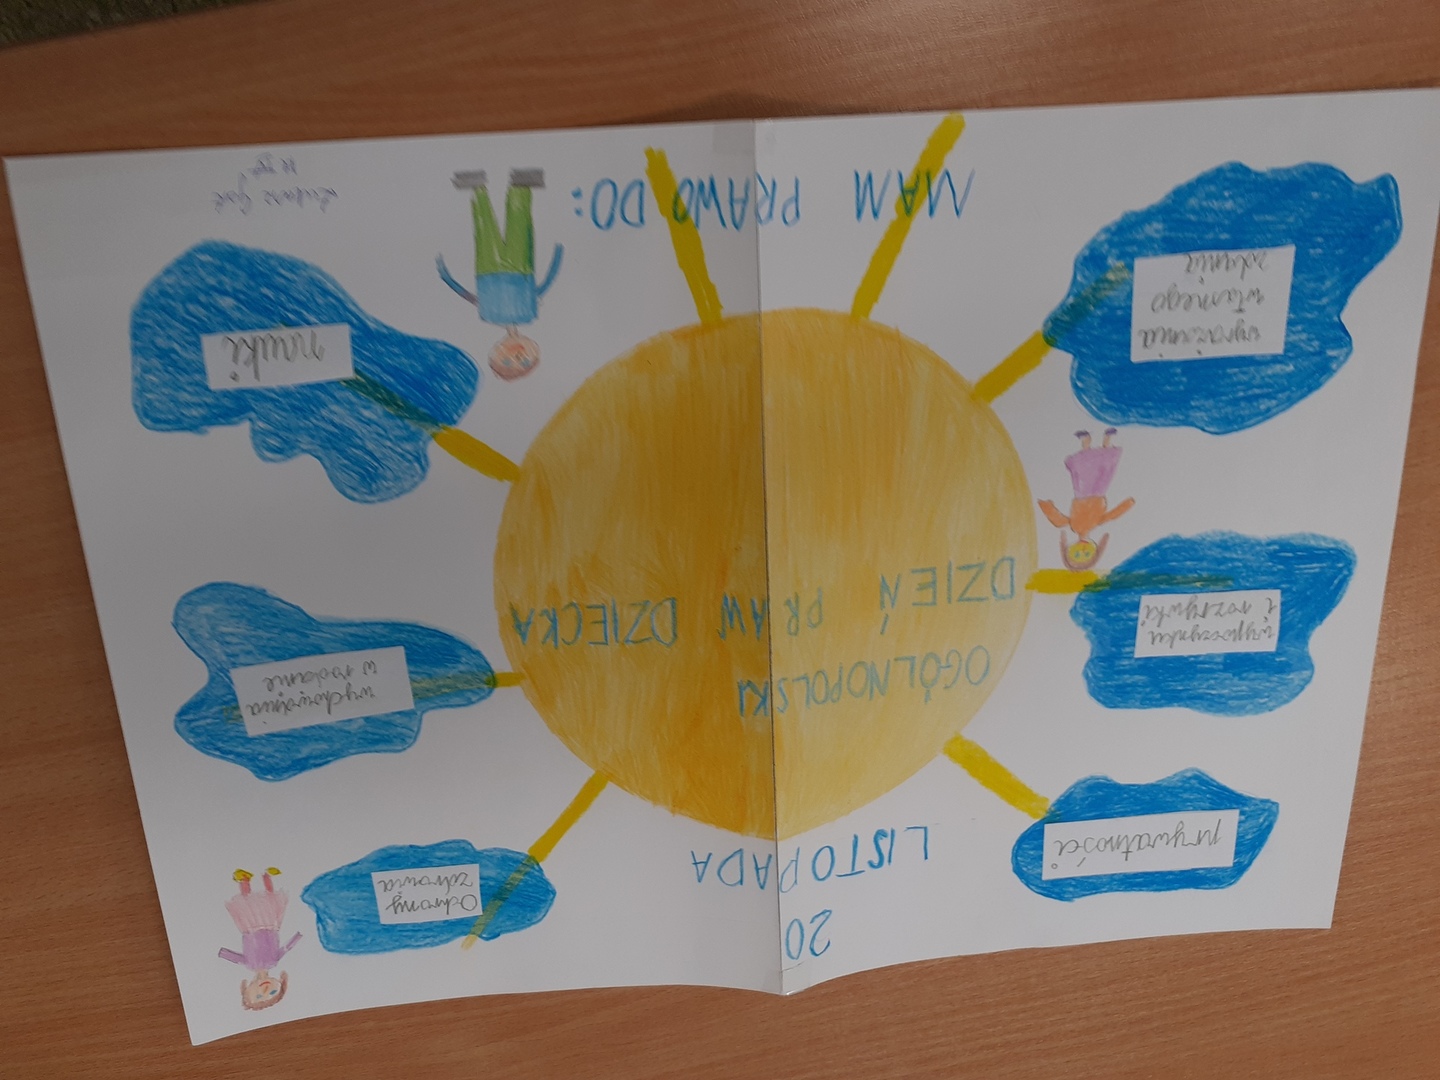 20
LISTOPADA
OGÓLNOPOLSKI
DZIEŃ PRAW DZIECKA
prywatności
Ochrony
zdrowia
wypoczynku
i rozrywki
wychowania
w rodzinie
wyrażania
własnego
zdania
nauki
MAM PRAWO DO: